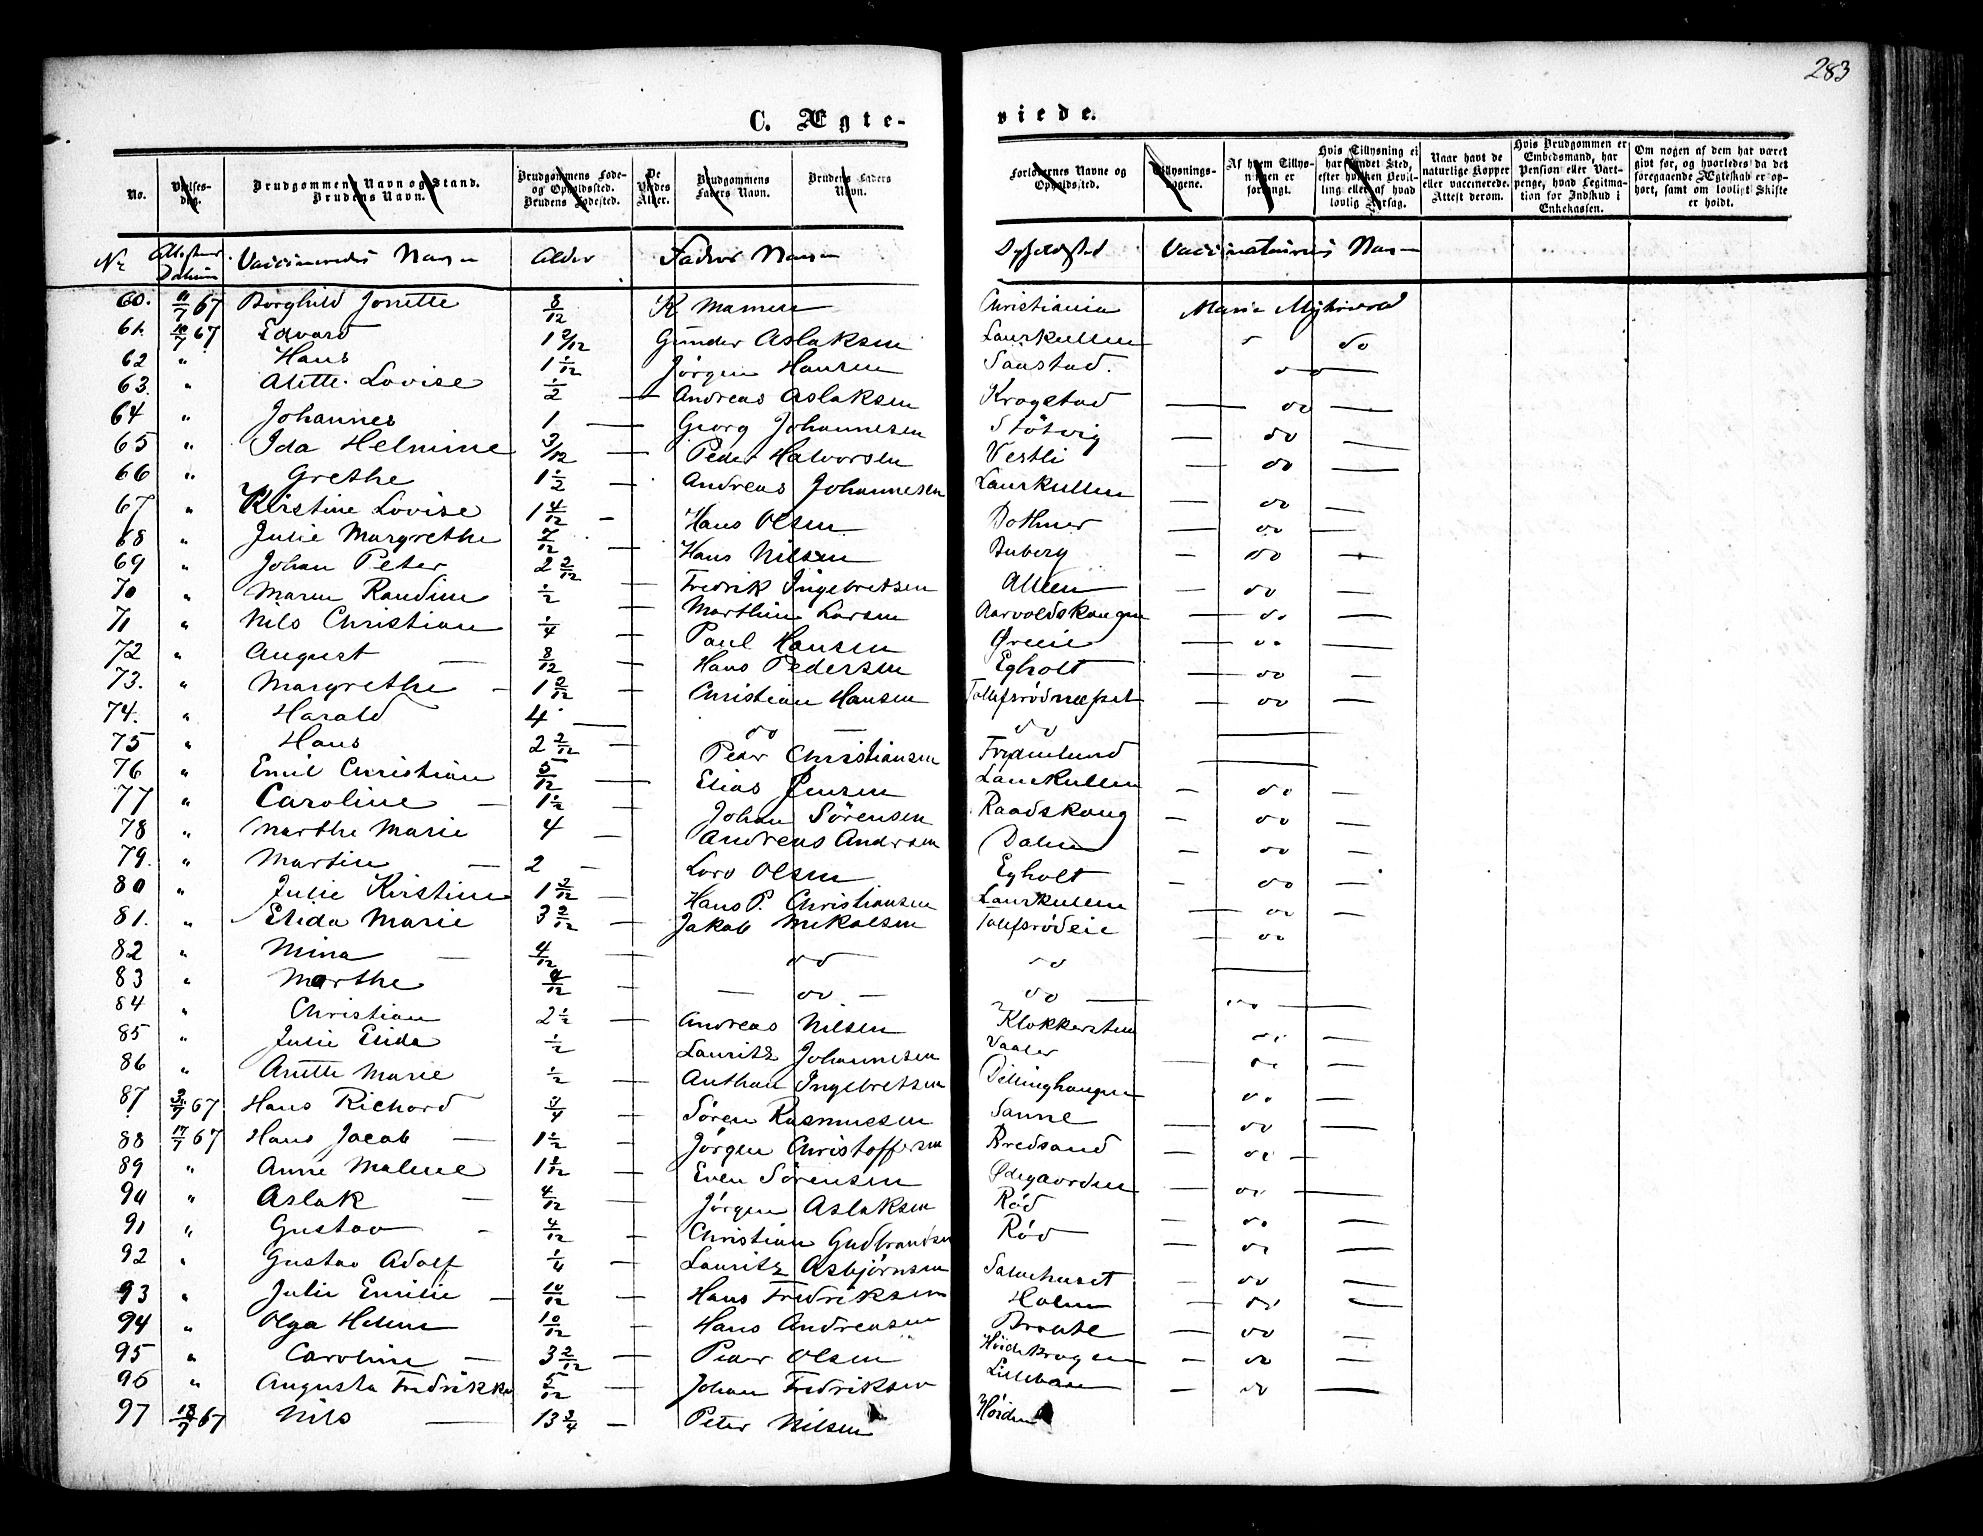 283
C. Ægte- viede.
No. Vielses-dag. Brudgommens Navn og Stand. Brudens Navn. Brudgommens Føde- og Opholdssted. Brudens Fødested. De Viedes Alder. Brudgommens Faders Navn. Brudens Faders Navn. Forlovernes Navne og Opholdssted. Tillysnings-dagene. Af hvem Tillys-ningen er forlangt. Hvis Tillysning ei har fundet Sted, efter hvilken Bevil-ling eller af hvad lovlig Aarsag. Naar havt de naturlige Kopper eller vaccinerede. Attest derom. Hvis Brudgommen er Embedsmand, har Pension eller Vart-penge, hvad Legitima-tion for Indskud i Enkekassen. Om nogen af dem har været givt før, og hvorledes da det foregaaende Ægteskab er op-hørt, samt om lovligt Skifte er holdt.
Nr Attestens Datum Vaccineredes Navn Alder Faders Navn Opholdssted Vaccinateurens Navn
60. 11/7 67 Borghild Jonette 8/12 K Mamen Christiania Maria Myhrvold
61. 10/7 67 Edvard 1 2/12 Gunder Aslaksen Laurkullen - do
62 " Hans 1 1/12 Jørgen Hansen Saastad. do
63. " Alette Lovise 1/2 — Andreas Aslaksen Krogstad — do —
64 " Johannes 1 — Georg Johannesen Støtvig — do —
65 " Ida Helmine 3/12 — Peder Halvorsen Vestli — do —
66 " Grethe 1 1/2 — Andreas Johannesen Laurkullen — do —
67 " Kirstine Lovise 1 4/12 — Hans Olsen Bothner — do —
68 " Julie Margrethe 7/12 — Hans Nilsen Buberg — do —
69 " Johan Peter 2 2/12 — Fredrik Ingebretsen Alleen — do —
70 " Maren Randine 1/2 — Marthin Larsen Aarvoldskougen — do —
71 " Nils Christian 1/4 — Paul Hansen Øreeie — do —
72 " August — 8/12 — Hans Pedersen Egholt — do —
73. " Margrethe — 1 2/12 — Christian Hansen Tollefsrødnæsset — do —
74. " Harald 4 — do — do
75 " Hans 2 2/12 — Peder Christiansen Frydenlund
76 " Emil Christian 5/12 — Elias Jensen Laurkullen — do —
77 " Caroline — 1 1/2 — Johan Sørensen Raadskoug — do —
78 " Marthe Marie 4 — Andreas Andersen Dalen — do —
79. " Martin — 2 — Lars Olsen Egholt — do —
80 " Julie Kirstine 1 2/12 — Hans P. Christiansen Laurkullen — do —
81. " Elida Marie 3 2/12 — Jakob Mikalsen Tollefsrødeie — do
82 " Mina — 4/12 — do do
83 " Marthe 4/12 — do — do — do —
84 " Christian 2 1/2 — Andreas Nilsen Klokkersten do —
85 " Julie Elida 1/2 — Lauritz Johannesen Vaaler — do —
86 " Anette Marie 1/2 — Anthon Ingebretsen Dillinghaugen — do —
87 3/7 67 Hans Richard 3/4 — Søren Rasmussen Sanne — do —
88 17/7 67 Hans Jacob — 1 1/2 — Jørgen Christoffersen Bredsand — do —
89 " Anne Malene 1 2/12 — Even Sørensen Ødegaarden — do —
90 " Aslak — 4/12 — Jørgen Aslaksen Rød — do —
91 " Gustav — 4/12 — Christian Gudbrandsen Rød — do —
92 " Gustav Adolf 1/4 — Lauritz Asbjørnsen — do —
93 " Julie Emilie — 10/12 — Hans Fredriksen Holen — do —
94 " Olga Helene 10/12 — Hans Andreasen — do —
95 " Caroline — 3 2/12 — Peder Olsen — do —
96 " Augusta Fredrikke 5/12 — Johan Fredriksen — do —
97 18/7 67 Nils — 13 3/4 — Peter Nilsen Høiden